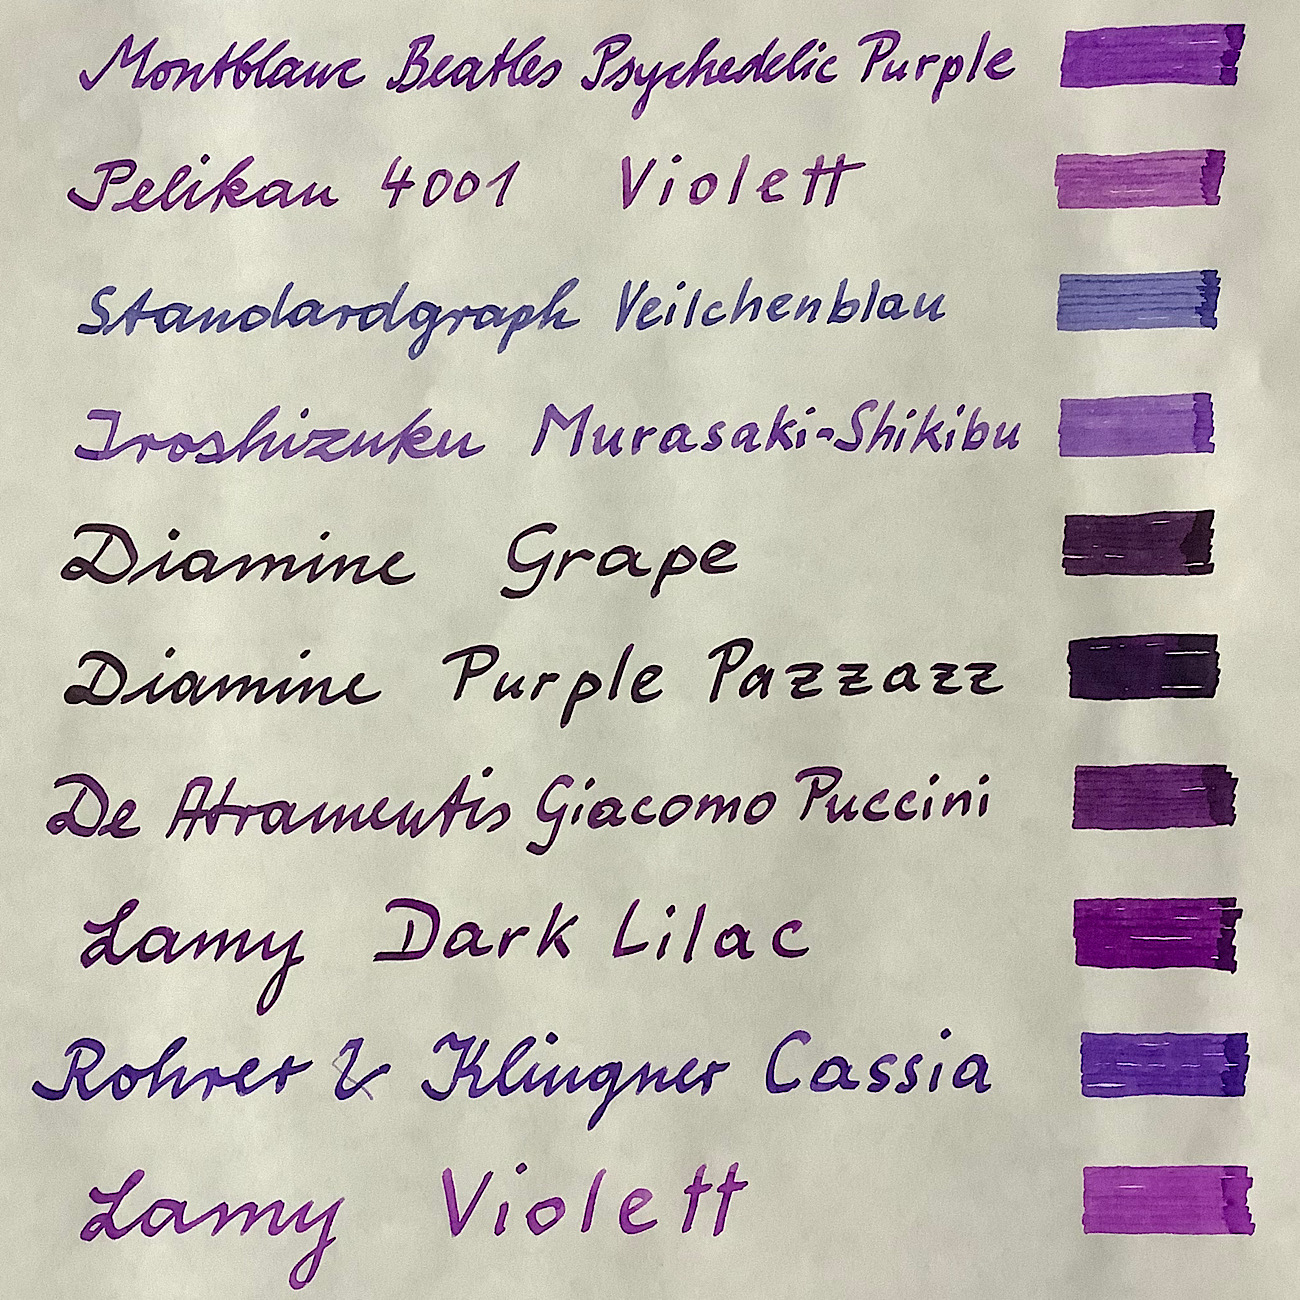 Montblanc Beatles Psychedelic Purple
Pelikan 4001 Violett
Standardgraph Veilchenblau
Iroshizuku Murasaki-Shikibu
Diamine Grape
Diamine Purple Pazzazz
De Atramentis Giacomo Puccini
Lamy Dark Lilac
Rohrer & Klingner Cassia
Lamy Violett